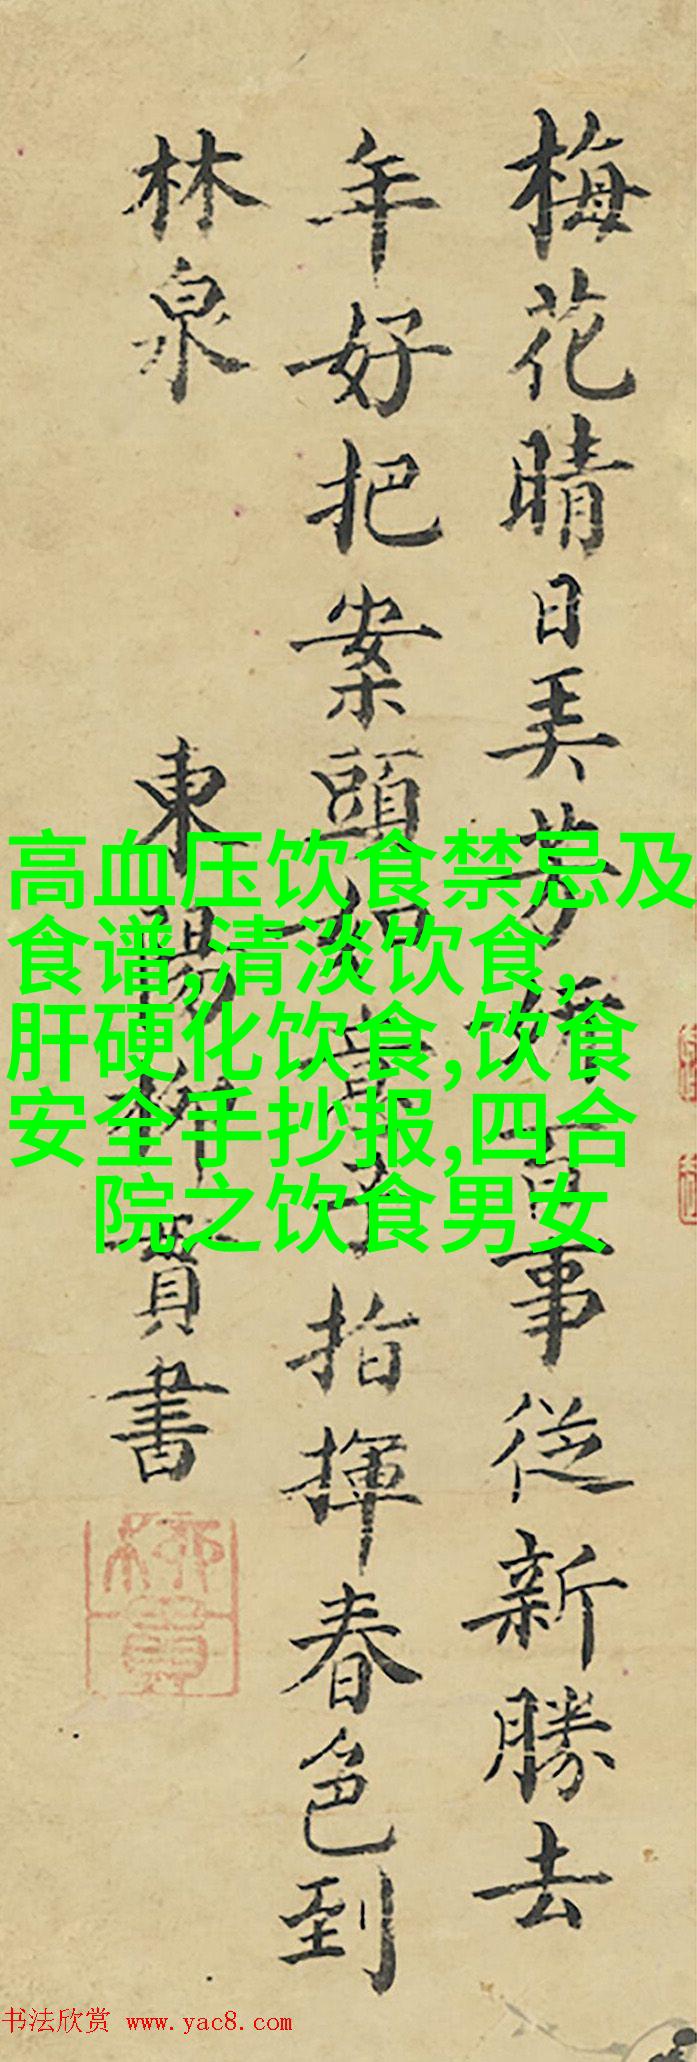 梅花晴日美芳妍百事從新勝去
年好把案頭如意子指揮春色到
林泉
東陽柳貫書
柳貫
高血压饮食禁忌及
食谱,清淡饮食,
肝硬化饮食,饮食
安全手抄报,四合
院之饮食男女
书法欣赏 www.yac8.com